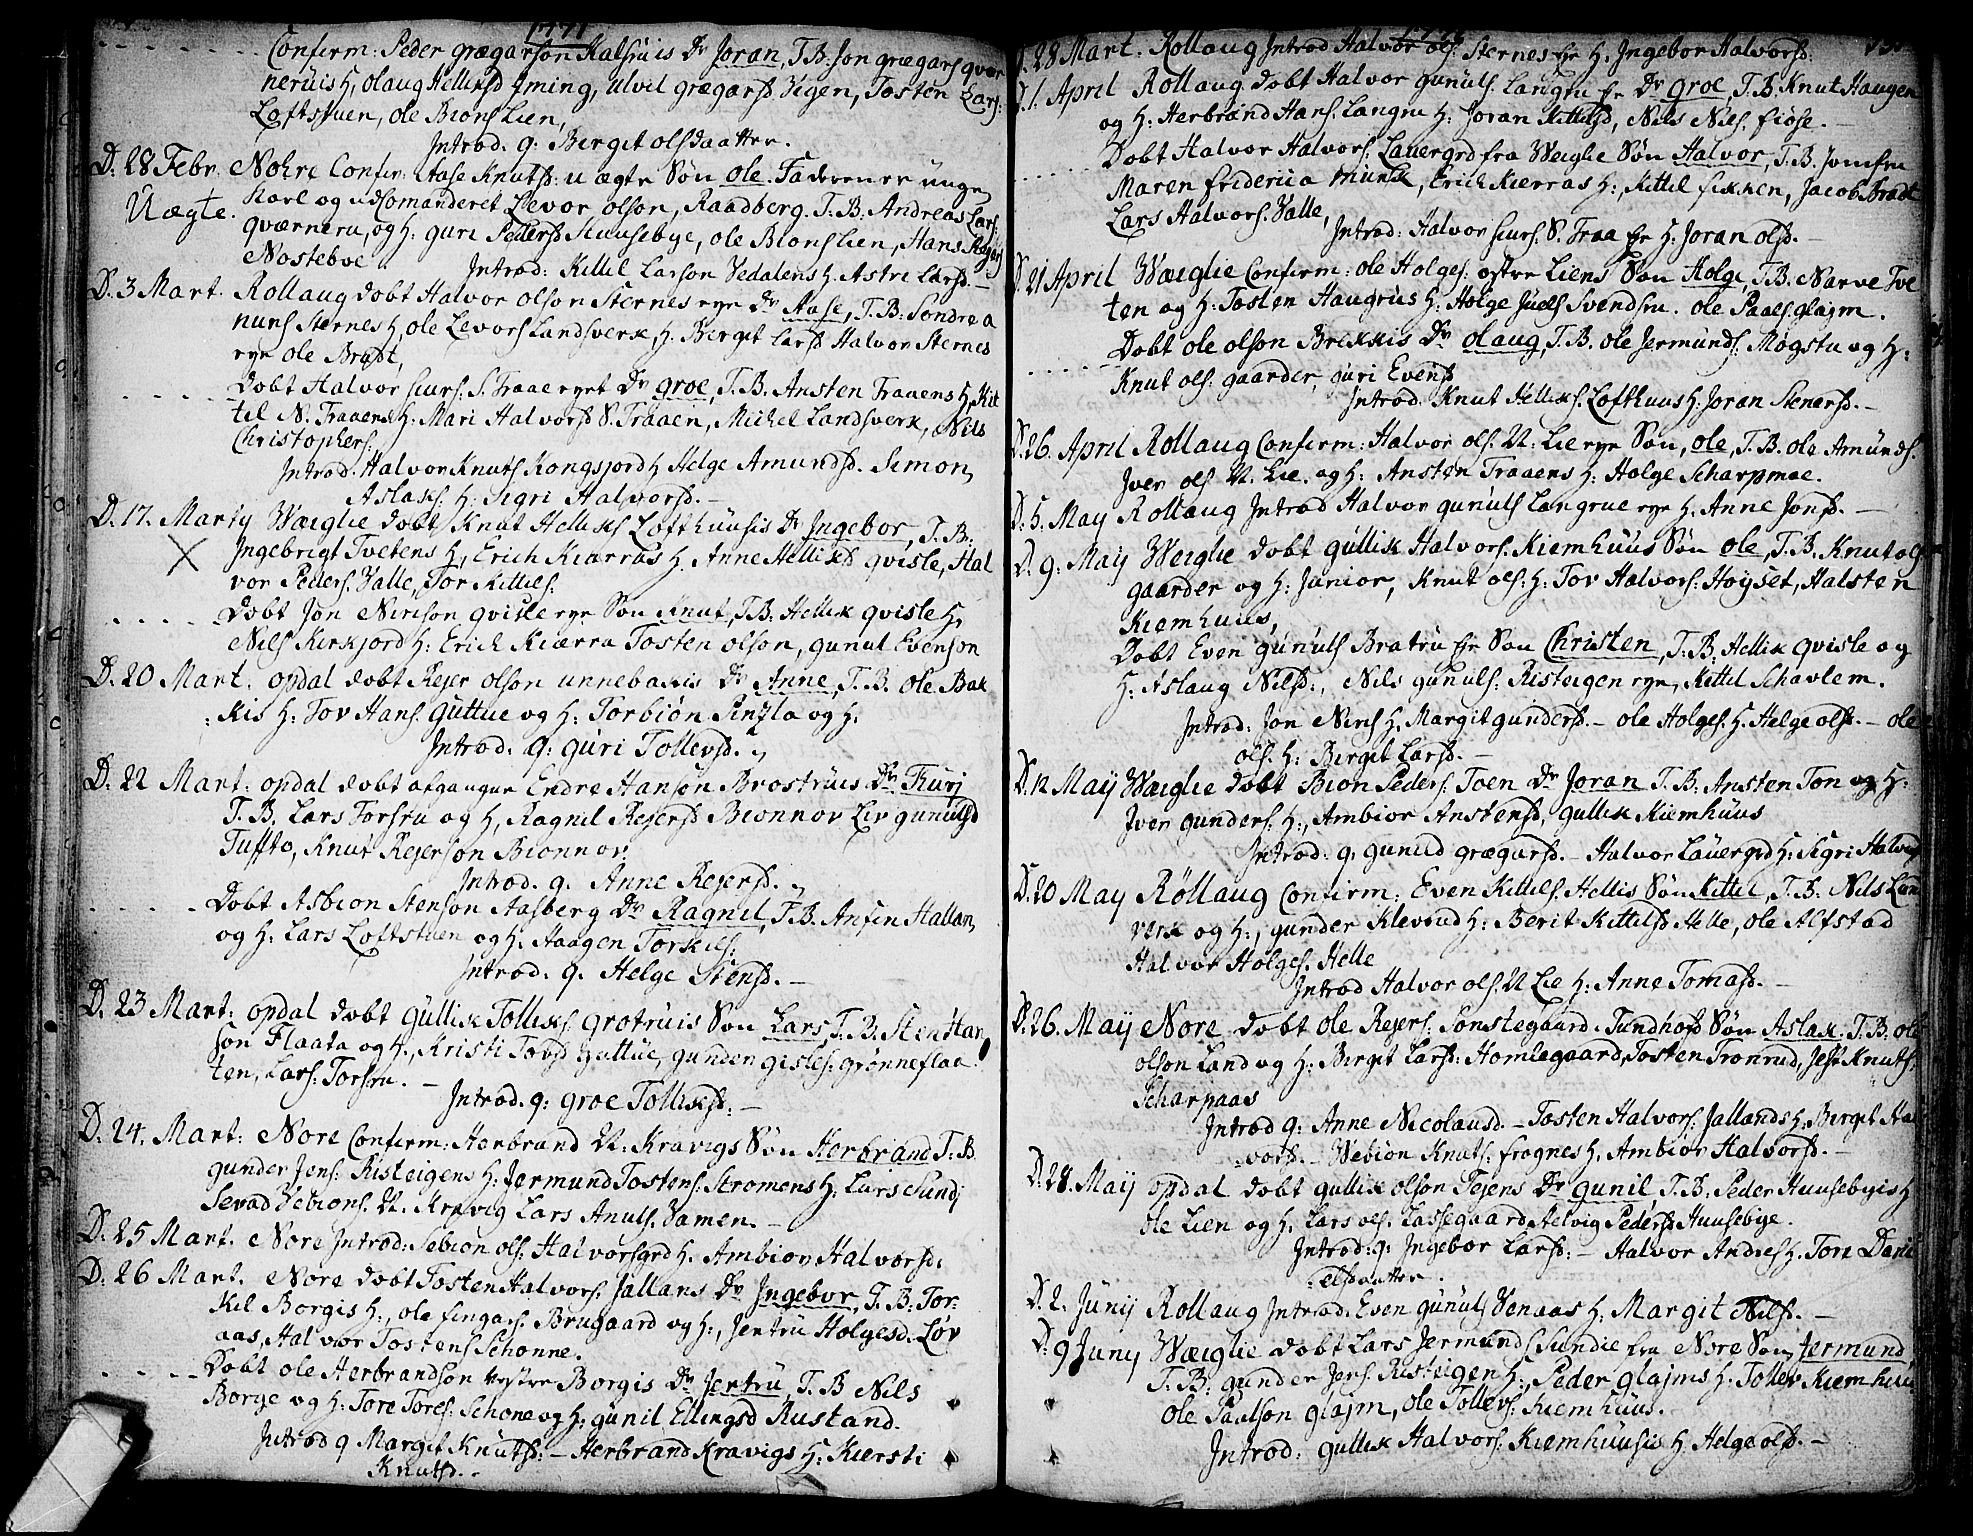 1771
Confirm: Peder grægarson Kalhuis Dr Joran, T.B. Jon grægars qvær
neruis H, olaug Hellusd Jming, Ulvil grægarsd Vigen, Tosten Lars:
Loftstuen, ole Bions Lien,
Introd. q: Berget olsdaatter.
D. 28 Febr. Nohre Confir: Aase Knutsd: uægte Søn ole. Faderen er unge
Uægte. Karl og udcomanderet Levor olson, Raadberg. T.B: Andreas Lars:
qværneru, og H: guri Pedersd Huusebye, ole Bions Lien, Hans
Nosteboe. Introd: Kittil Larson Vedalens H: Astri Larsd. –
D. 3 Mart. Rollaug dobt Halvor olson Sternes eye Dr Aase, T.B: Sondre
nuns Sternes H, ole Levors Landsverk, H: Berget Larsd Halvor Sternes
eye ole Bradt,
. . . . . Dobt Halvor S. Traae eyet Dr groe, T.B. Ansten Traaens H, Kit
til N. Traaens H: Mari Halvorsd S. Traaen, Michel Landsverk, Nils
Christophers.
Introd. Halvor Knuts Kongsjord H Helge Amundsd. Simon
Aslaks: H: Sigri Halvorsd. –
D. 17. Marty Wæglie dobt Knut Helliks Lofthuusis Dr Ingebor, T.B:
X Ingebrigt Tvetens H, Erich Kiærras H. Anne Helliksd qvisle, Hal
vor Peders. Valle, Tor Kittils:
. . . . Dobt Jon Nirison qvisle eye Søn Knut, T.B: Hellik qvisle H,
Nils Kirkjord H: Erich Kiærra Tosten olson, gunul Evenson
D. 20 Mart. opdal dobt Rejer olson unnebakis Dr Anne, T.B. ole Bak
kis H: Tov Hans. Guttue og H: Torbiøn Sinzla og H.
Introd. q: guri Tollevsd.
D. 22 Mart: opdal dobt afganger Endre Hanson Brostruis Dr Thurj
T.B. Lars Torsru og H, Ragnil Rejersd Bionnov Liv gunulsd
Tuffto, Knut Rejerson Bionnov.
Introd. q. Anne Rejersd.
. . . . . Dobt Asbion Stenson Aasberg Dr Ragnil, T.B. Ansin Hallan
og H: Lars Loftstuen og H. Haagen Torkils:
Introd. q. Helge Stensd. –
D. 23 Mart: opdal dobt Gullik Tolliks Grotruis Søn Lars, T.B. Sten Han
son Flaata og H., Kristi Torsd Guttue, gunden gisles: grønneflaa
ten, Lars: Torsru. –
Introd. q: groe Tolliksd: –
D. 24. Mart: Nore Confirm: Herbrand N: Kravigs Søn Herbrand T.B
gunder Jens: Risteigens H: Jermund Tostens: Stromens H: Lars Sund
Sevad Vebions. N. Kravig Lars Anuls. Vamen. –
D. 25 Mart. Nore Introd: Sebion ols: Halvorsgrd H. Ambior Halvorsd:
D. 26 Mart. Nore dobt Tosten Halvors. Jallans Dr Ingebor, T.B. Tor:
kil Borgis H., ole fingars: Brugaard og H:, Jertru Holgesd. Løv
aas, Halvor Tostens Schonne.
. . . . . Dobt ole Herbrandson Vestre Borgis Dr Jertru, T.B Nils
Borge og H: Tore Tores: Schone og H: gunil Ellingsd Rustand.
Introd q Margit Knutsd: – Herbrand Kravigs H: Kiersti
Knutsd. –
D. 28 Mart. Rollaug Introd Halvor ols. Sternes Eye H. Ingebor Halvorsd:
D. 1. April Rollaug dobt Halvor gunuls. Langru Eye Dr groe, T.B. Knut Haugen
og H: Herbrand Hans. Langru H: Joran Kittilsd, Nils Nils. fiøse. –
. . . . . Dobt Halvor Halvors: Lauergrd fra Wæglie Søn Halvor, T.B. Jomfru
Maren friderica Munck, Erich Kierras H:, Kittil fikken, Jacob Bradt
Lars Halvors. Valle,
Introd: Halvor S. Traa Eye H: Joran olsd. –
D. 21 April Wæglie Confirm: ole Holges: østre Liens Søn Holge, T.B. Narve Tve
ten og H: Tosten Haugrus H: Holge Juels Svendsru. ole Paals. glajm.
. . . . . Dobt ole olson Brekkis Dr olaug, T.B. ole Jermunds: Mogstu og H:
Knut ols: gaarder, guri Evensd
Introd. Knut Helliks. Lofthuus H. Joran Stenersd. –
D. 26. April Rollaug Confirm: Halvor ols. N: Lie eye Søn, ole, T.B. ole Amunds:
Iver ols N. Lie. og H: Ansten Traaens H: Holge Scharpmoe.
D. 5. May Rollaug Introd Halvor gunuls Langrue eye H: Anne Jonsd. –
D. 9: May Weglie dobt gullik Halvors. Kiemhuus Søn ole, T.B. Knut ols
gaarder og H: Junior, Knut ols: H: Tov Halvors: Høyset, Halsten
Kiemhuus,
Dobt Even gunuls Bratru Eye Søn Christen, T.B. Hellik qvisle og
H: Aslaug Nilsd:, Nils gunuls: Risteigen eye, Kittil Schavlem.
Introd: Jon Niris H, Margit gundersd. – ole Holges. H. Helge olsd. – ole
ols. H: Berget Larsd. –
D. 12 May Wæglie dobt Bion Peders. Toen Dr Joran T.B. Ansten Ton og H:
Iver gunders. H:, Ambior Anstensd, gullik Kiemhuus
Introd: q: gunild grægarsd. – Halvor Lauergrd H: Sigri Halvorsd
D. 20 May Rollaug Confirm: Even Kittils. Hellis Søn Kittil, T.B. Nils Lands
verk og H:, gunder Klevrud H: Berit Kittilsd Helle, ole Alfstad
Halvor Holges. Helle
Introd Halvor ols. N Lie H: Anne Tomasd. –
D. 26. May Nore dobt ole Rejers: Sønstegaard Tundhofd Søn Aslak. T.B: ole
olson Land og H: Berget Larsd: Homlegaard, Tosten Tronrud, Knuts:
Scharpaas
Introd q: Anne Nicolausd. – Tosten Halvors. Jallands H: Berget Hal
vorsd. – Webion Knuts. frognes H, Ambior Halvorsd. –
D. 28. May opdal dobt gullik olson Tejens Dr gunil T.B. Peder Huusebyis H
ole Lien og H. Lars ols. Lassegaard, Aelvig Pedersd Huusebye.
Introd: q: Ingebor Larsd: – Halvor Andres H. Tore Dani
elsdatter.
D. 2. Junij Rollaug Introd. Even gunuls Venaas H: Margit Nilsd. –
D: 9 Juny Wæglie dobt Lars Jermunds Sundie fra Nore Søn Jermund
T.B: gunder Jens. Risteigen H:, Peder glajms H: Tollev Kiemhuus
ole Paalson glajm, ole Tollevs: Kiemhuus.
Introd: gullik Halvors: Kiemhuusis H. Helge olsd. –